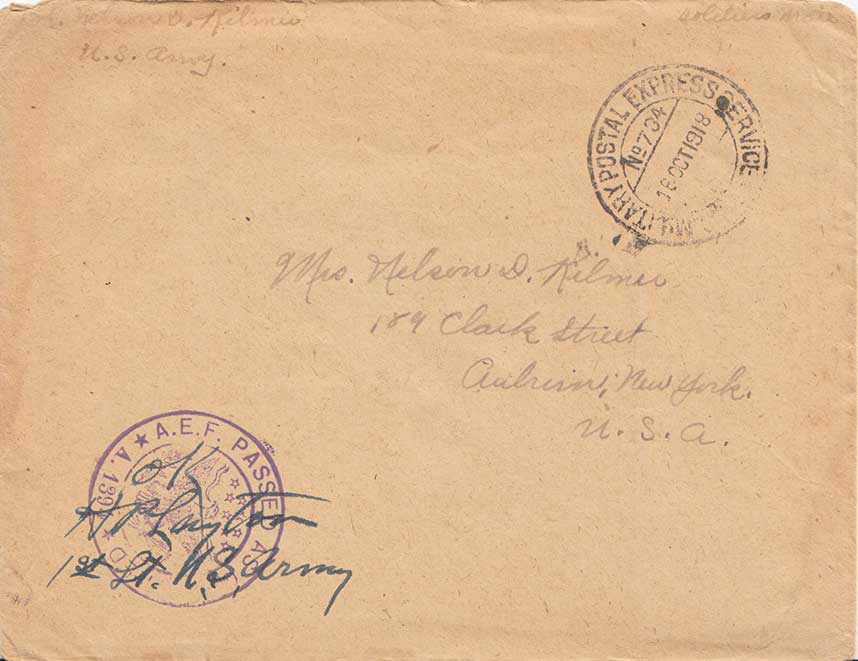 Nelson D. Kilmer
U.S. Army.
Soldiers Mail
MILITARY POSTAL EXPRESS SERVICE
No 734
16 OCT 1918
Mrs. Nelson D. Kilmer
189 Clark Street
Auburn, New York.
U. S. A.
A.E.F. PASSED AS
A. 139
OK
H P Layton
1st Lt. U.S. Army